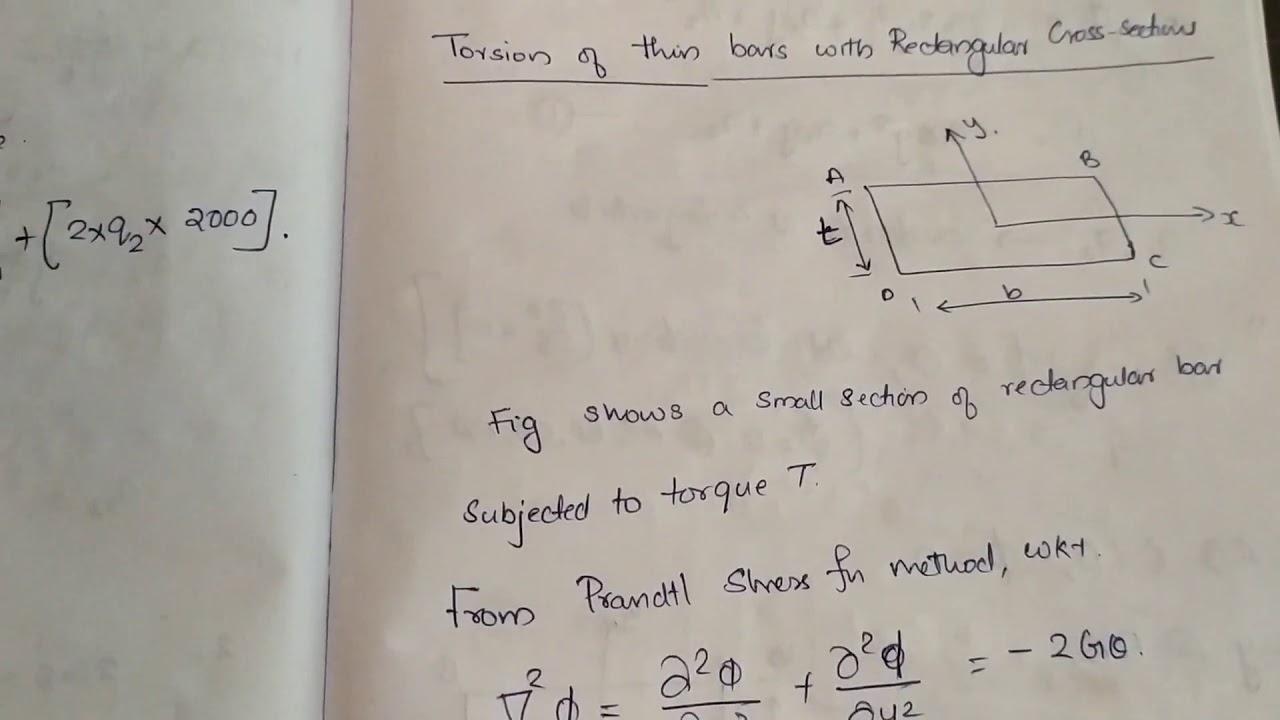 Torsion of thin bars with Rectangular Cross-sections
+[2×q₂× 2000].
y.
A
B
t
x
C
D
b
Fig shows a small section of rectangular bar
Subjected to torque T.
From Prandtl Stress fn method, wkt.
∇²ϕ = ∂²ϕ + ∂²ϕ = - 2Gθ.
∂y²